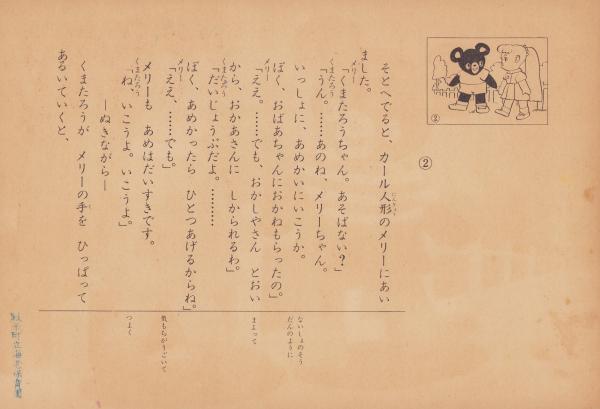 ②
②
そとへでると、カール人形のメリーにあい
にんぎょう
ました。
メリー
「くまたろうちゃん。あそばない？」
くまたろう
「うん。……あのね、メリーちゃん。
いっしょに、あめかいにいこうか。
ぼく、おばあちゃんにおかねもらったの」。
メリー
「ええ。……でも、おかしやさん とおい
から、おかあさんに しかられるわ」。
くまたろう
「だいじょうぶだよ。………
ぼく、あめかったら ひとつあげるからね。」
メリー
「ええ、……でも」。
メリーも あめはだいすきです。
くまたろう
「ね、いこうよ。いこうよ」。
―ぬきながら―
くまたろうが メリーの手を ひっぱって
て
あるいていくと、
ないしょのそう
だんのように
まよって
気もちがうごいて
つよく
町立
保育園